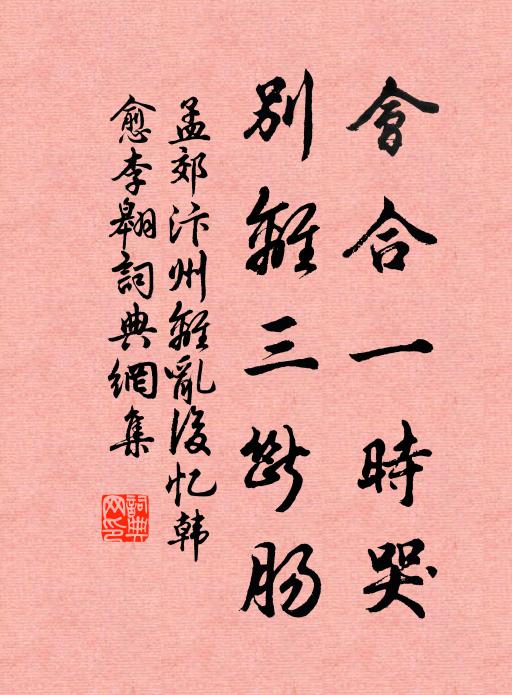 會合一時哭
別離三斷腸
孟郊汴州離亂後忆韩
愈李翱詞典網集
詞典
网印